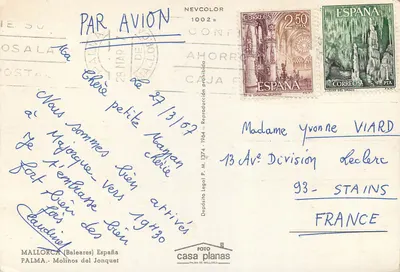 NEVCOLOR
1002 b
PAR AVION
2,50
ESPAÑA
CORREOS
ESPAÑA
CORREOS
PTA
AHORRO
CAJA
le 27/3/67
Ma chère petite Maman
chérie
Nous sommes bien arrivés
à Majorque vers 19H30
Je t'embrasse bien
fort bien des fois
Claudine
Madame Yvonne VIARD
13 Ave Division Leclerc
93- STAINS
FRANCE
Depósito Legal P. M. 1374 - 1964 - Reproducción prohibida
MALLORCA (Baleares) España
PALMA.- Molinos del Jonquet
FOTO
casa planas